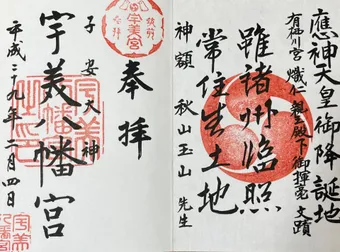 應神天皇御降誕地
有栖川宮 熾仁親王殿下御揮毫文蹟
雖諸州臨照
常住生土地
神額 秋山玉山先生
奉拝
子安大神
宇美八幡宮
平成二十九年二月四日
筑前
宇美宮